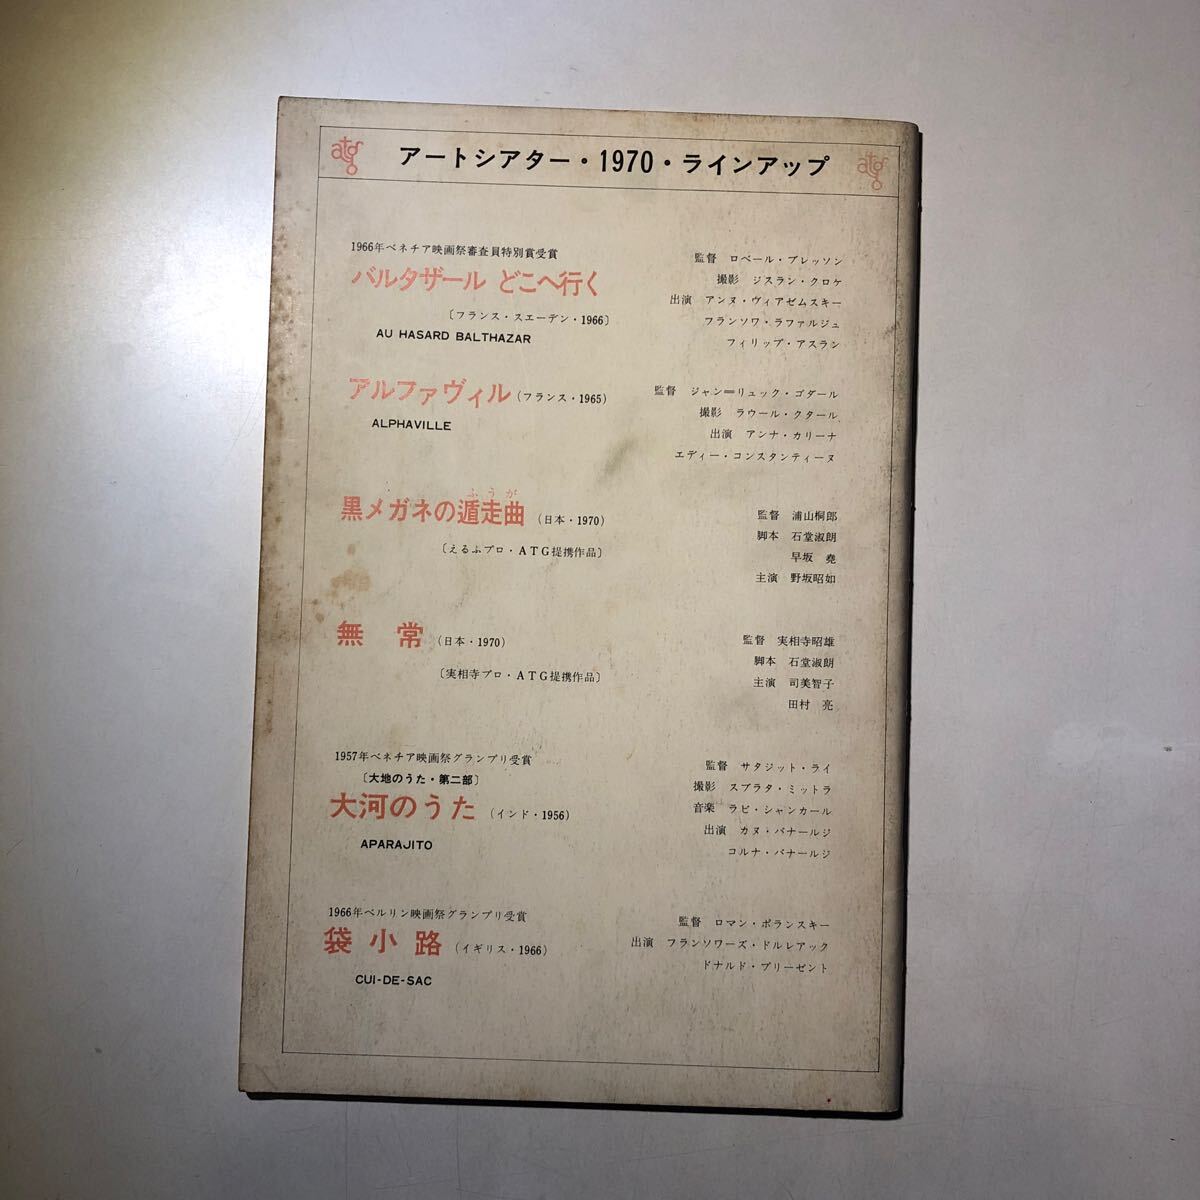 atg アートシアター・1970・ラインアップ atg
1966年ベネチア映画祭審査員特別賞受賞
バルタザール どこへ行く
〔フランス・スエーデン・1966〕
AU HASARD BALTHAZAR
監督 ロベール・ブレッソン
撮影 ジスラン・クロケ
出演 アンヌ・ヴィアゼムスキー
フランソワ・ラファルジュ
フィリップ・アスラン
アルファヴィル（フランス・1965）
ALPHAVILLE
監督 ジャン＝リュック・ゴダール
撮影 ラウール・クタール
出演 アンナ・カリーナ
エディー・コンスタンティーヌ
ふうが
黒メガネの遁走曲（日本・1970）
〔えるふプロ・ＡＴＧ提携作品〕
監督 浦山桐郎
脚本 石堂淑朗
早坂 堯
主演 野坂昭如
無常（日本・1970）
〔実相寺プロ・ＡＴＧ提携作品〕
監督 実相寺昭雄
脚本 石堂淑朗
主演 司美智子
田村 亮
1957年ベネチア映画祭グランプリ受賞
〔大地のうた・第二部〕
大河のうた（インド・1956）
APARAJITO
監督 サタジット・ライ
撮影 スブラタ・ミットラ
音楽 ラビ・シャンカール
出演 カヌ・バナールジ
コルナ・バナールジ
1966年ベルリン映画祭グランプリ受賞
袋小路（イギリス・1966）
CUI-DE-SAC
監督 ロマン・ポランスキー
出演 フランソワーズ・ドルレアック
ドナルド・プリーゼント